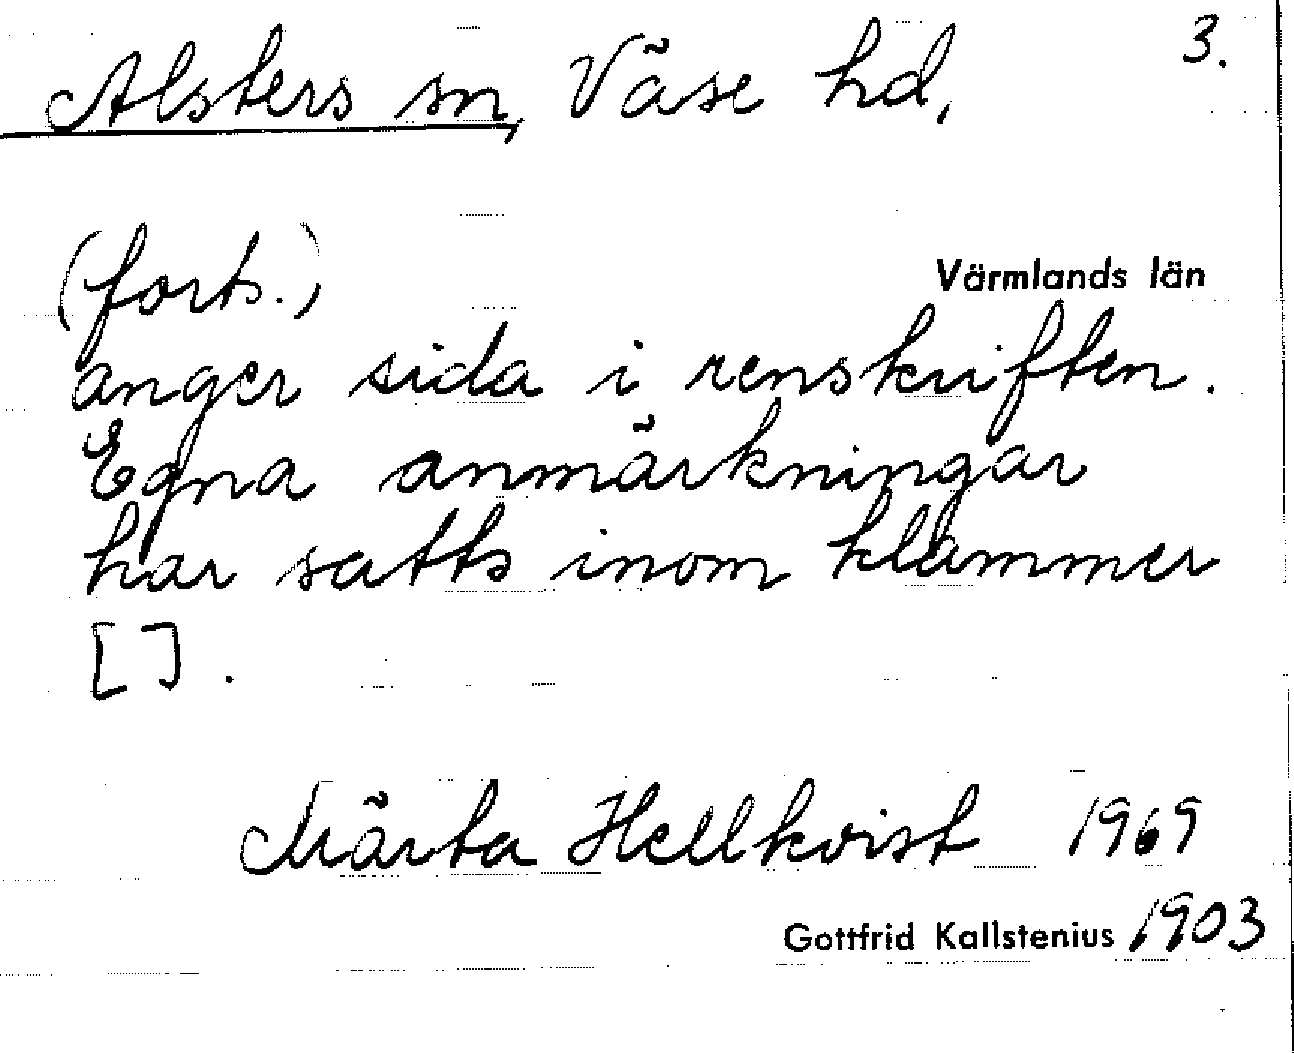 Alsters sn, Väse hd, 3.
(forts.) Värmlands län
anger sida i renskriften.
Egna anmärkningar
har satts inom klammer
[ ].
Märta Hellkvist 1969
Gottfrid Kallstenius 1903